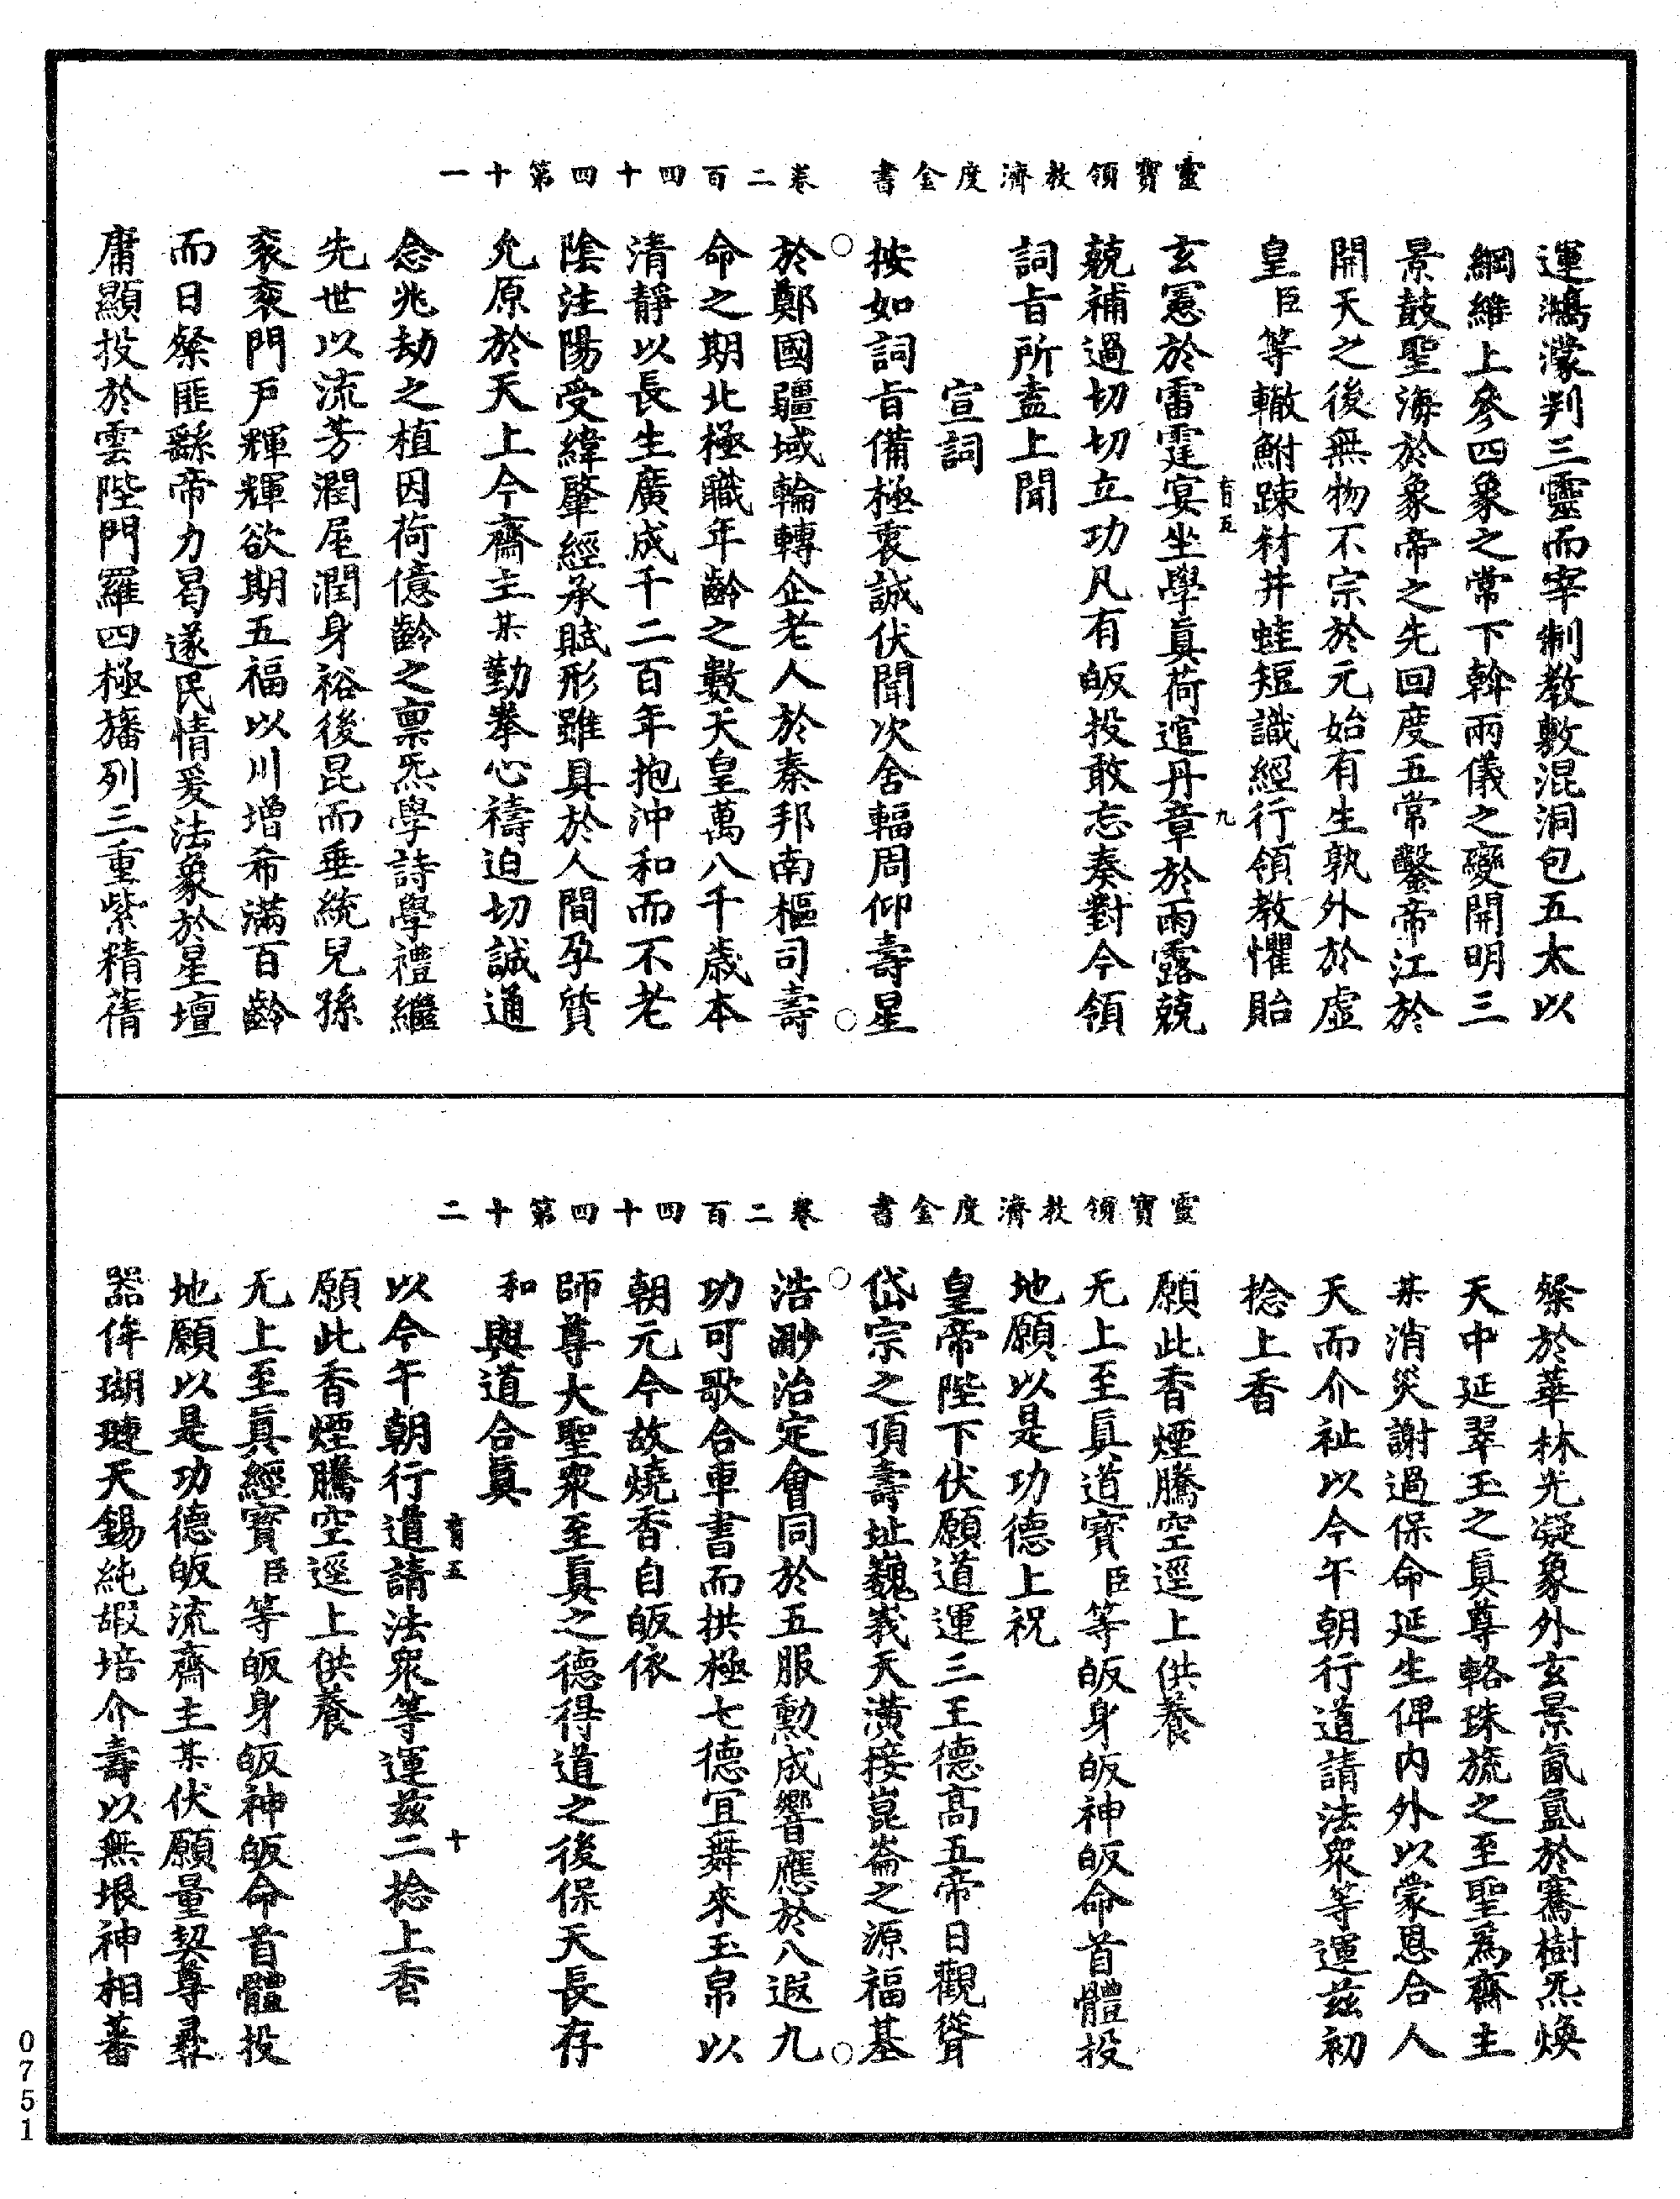 靈寶領教濟度金書　卷二百四十四第十一
運鴻濛判三靈而宰制教敷混洞包五太以
綱維上參四象之常下斡兩儀之變開明三
景鼓聖海於象帝之先回度五常鑿帝江於
開天之後無物不宗於元始有生孰外於虛
皇臣等轍鮒踈材井蛙短識經行領教懼貽
玄憲於雷霆宴坐學眞荷逭丹章於雨露兢
育五　九
兢補過切切立功凡有皈投敢忘奏對今領
詞旨所盍上聞
宣詞
按如詞旨備極衷誠伏聞次舍輻周仰壽星
於鄭國疆域輪轉企老人於秦邦南樞司壽
命之期北極職年齡之數天皇萬八千歲本
清靜以長生廣成千二百年抱沖和而不老
陰注陽受緯肇經承賦形雖具於人間孕質
允原於天上今齋主某勤拳心禱迫切誠通
念兆劫之植因荷億齡之禀炁學詩學禮繼
先世以流芳潤屋潤身裕後昆而垂統兒孫
袞袞門戶輝輝欲期五福以川增希滿百齡
而日粲匪繇帝力曷遂民情爰法象於星壇
庸顯投於雲陛門羅四極旛列三重紫精蒨
靈寶領教濟度金書　卷二百四十四第十二
粲於華林光凝象外玄景氤氳於騫樹炁煥
天中延翠玉之眞尊輅珠旒之至聖爲齋主
某消災謝過保命延生俾內外以蒙恩合人
天而介祉以今午朝行道請法眾等運茲初
捻上香
願此香煙騰空逕上供養
无上至眞道寶臣等皈身皈神皈命首體投
地願以是功德上祝
皇帝陛下伏願道運三王德高五帝日觀聳
岱宗之頂壽址巍峩天潢接崑崙之源福基
浩渺治定會同於五服勲成響應於八遐九
功可歌合車書而拱極七德宜舞來玉帛以
朝元今故燒香自皈依
師尊大聖眾至眞之德得道之後保天長存
和與道合眞
以今午朝行道請法眾等運茲二捻上香
育五　十
願此香煙騰空逕上供養
无上至眞經寶臣等皈身皈神皈命首體投
地願以是功德皈流齋主某伏願量契尊彛
器侔瑚璉天錫純嘏培介壽以無垠神相蕃
0751